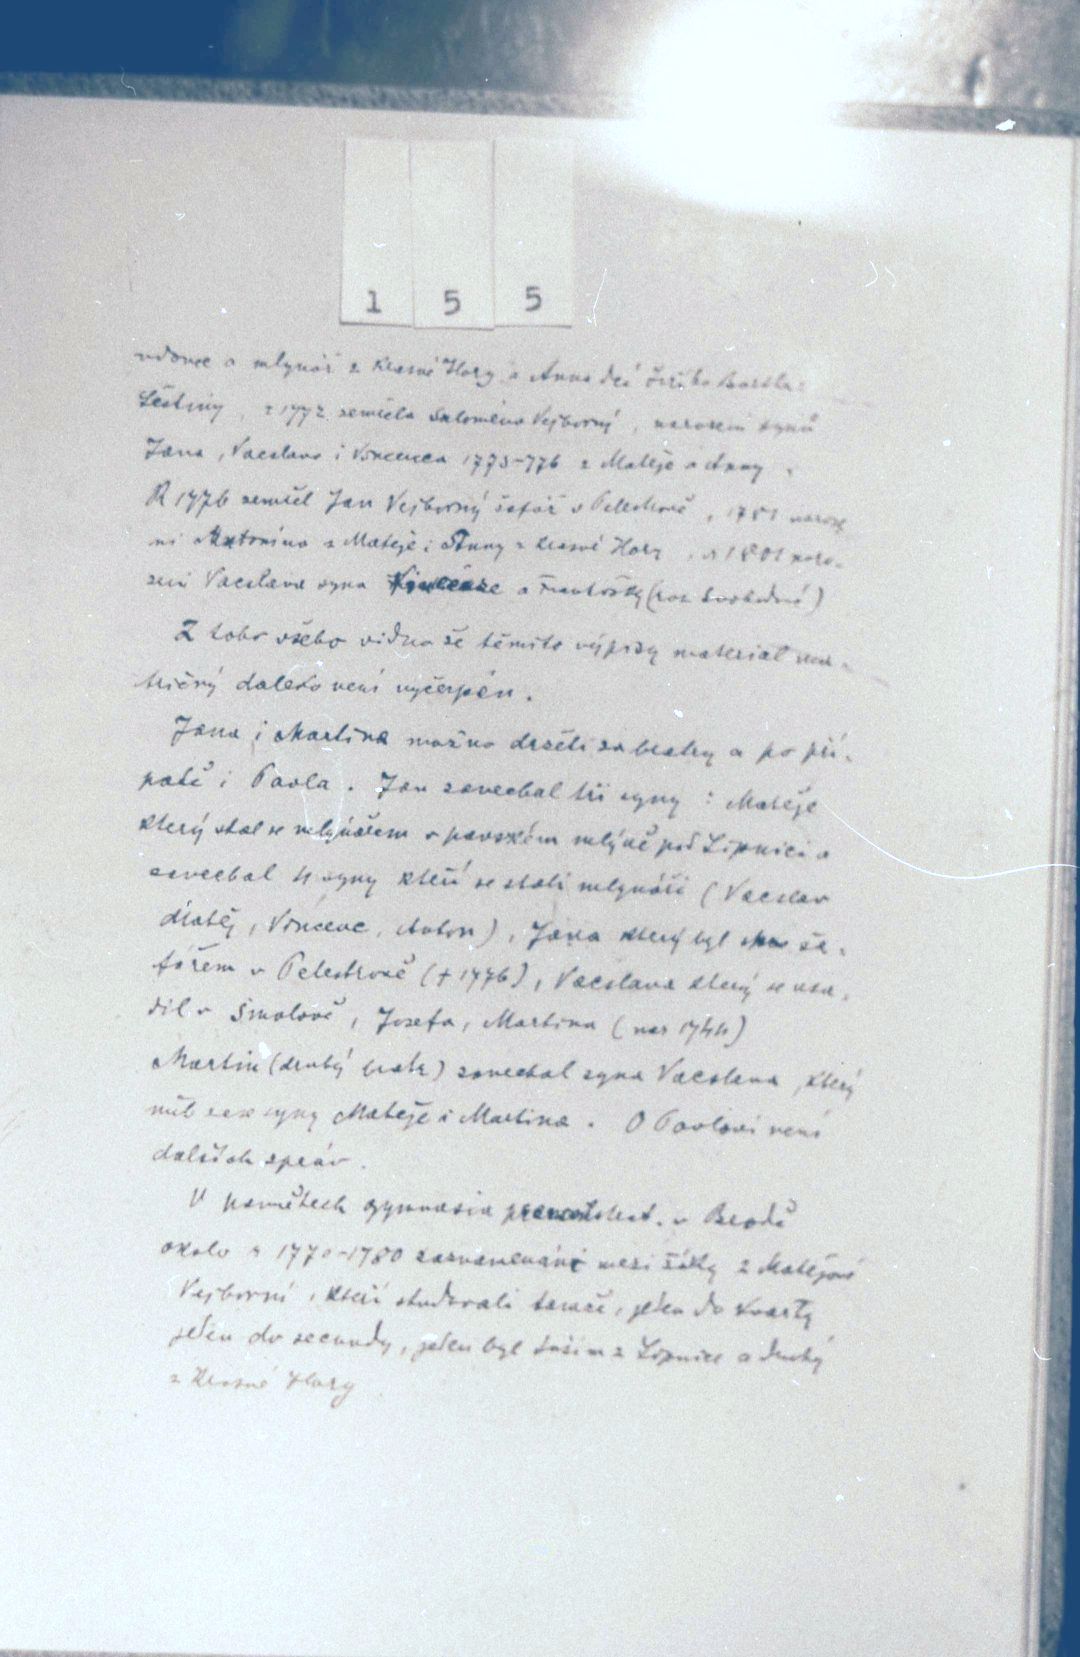 1 5 5
vdovce a mlynář z Krásné Hory a Anna dcí Jiříka
Leštiny, r 1772 zemřela Salomena Vejborný, narozeni synů
Jana, Vaclava i Vincence 1773-776 z Matěje a Anny.
R 1776 zemřel Jan Vejborný šafář v Pelestrově, 1781 naroze
ní Antonína z Matěje i Anny z Krasné Hory, r 1801 naro-
zení Vacslava syna a Františky (roz Svobodové)
Z toho všeho vidno že těmito výpisy material ma-
tričný daleko není vyčerpán.
Jana i Martina možno držeti za bratry a po pří-
padě i Pavla. Jan zanechal tři syny: Matěje
který stal se mlynářem v panském mlýně pod Lipnicí a
zanechal 4 syny kteří se stali mlynáři (Vacslav
Matěj, Vincenc, Anton), Jana který byl ša-
fářem v Pelestrově († 1776), Vacslava který se usa-
dil v Smolově, Josefa, Martina (nar 1744)
Martin (druhý bratr) zanechal syna Vacslava, který
měl zase syny Matěje i Martina. O Pavlovi není
dalších zpráv.
V pamětech gymnasia v Brodě
okolo r 1770-1780 zaznamenáni mezi žáky 2 Matějové
Vejborní, kteří studovali, jeden do kvarty
jeden do secundy, jeden byl tuším z Lipnice a druhý
z Krásné Hory